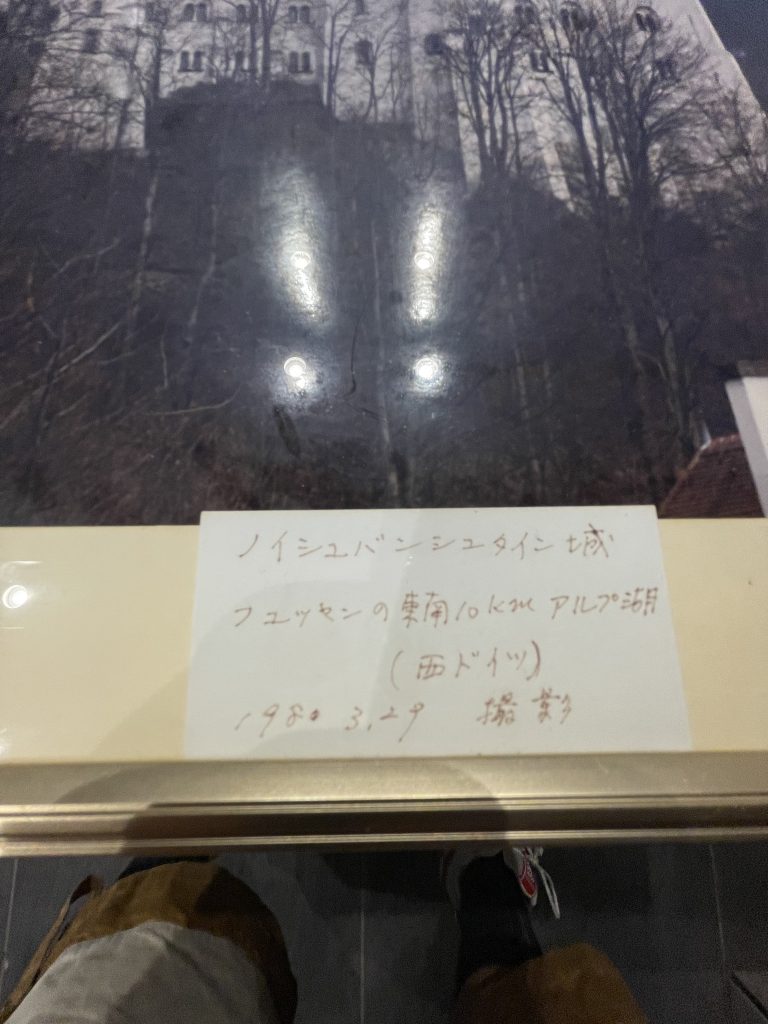 ノイシュバンシュタイン城
フュッセンの東南10km アルプ湖
(西ドイツ)
1980 3.29 撮影